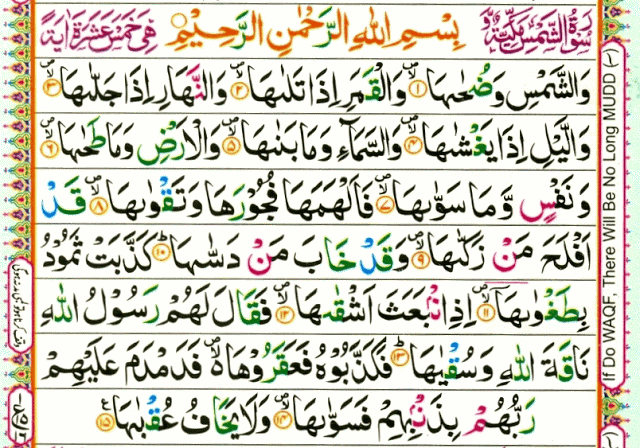 سُوْرَةُ الشَّمْسِ مَكِّيَّةٌ وَّ بِسْمِ اللهِ الرَّحْمٰنِ الرَّحِيْمِ هِيَ خَمْسَ عَشْرَةَ اٰيَةً
وَالشَّمْسِ وَضُحٰىهَا ۙ﴿۱﴾ وَالْقَمَرِ اِذَا تَلٰىهَا ۙ﴿۲﴾ وَالنَّهَارِ اِذَا جَلّٰىهَا ۙ﴿۳﴾
وَالَّيْلِ اِذَا يَغْشٰىهَا ۙ﴿۴﴾ وَالسَّمَآءِ وَمَا بَنٰىهَا ۙ﴿۵﴾ وَالْاَرْضِ وَمَا طَحٰىهَا ۙ﴿۶﴾
وَنَفْسٍ وَّمَا سَوّٰىهَا ۙ﴿۷﴾ فَاَلْهَمَهَا فُجُوْرَهَا وَتَقْوٰىهَا ۙ﴿۸﴾ قَدْ
اَفْلَحَ مَنْ زَكّٰىهَا ۙ﴿۹﴾ وَقَدْ خَابَ مَنْ دَسّٰىهَا ؕ﴿۱۰﴾ كَذَّبَتْ ثَمُوْدُ
بِطَغْوٰىهَاۤ ۙ﴿۱۱﴾ اِذِ انْۢبَعَثَ اَشْقٰىهَا ۙ﴿۱۲﴾ فَقَالَ لَهُمْ رَسُوْلُ اللهِ
نَاقَةَ اللهِ وَسُقْيٰهَا ؕ﴿۱۳﴾ فَكَذَّبُوْهُ فَعَقَرُوْهَا ۙ۬ فَدَمْدَمَ عَلَيْهِمْ
رَبُّهُمْ بِذَنْۢبِهِمْ فَسَوّٰىهَا ۙ﴿۱۴﴾ وَلَا يَخَافُ عُقْبٰهَا ﴿۱۵﴾
If Do WAQF, There Will Be No Long MUDD (۱)